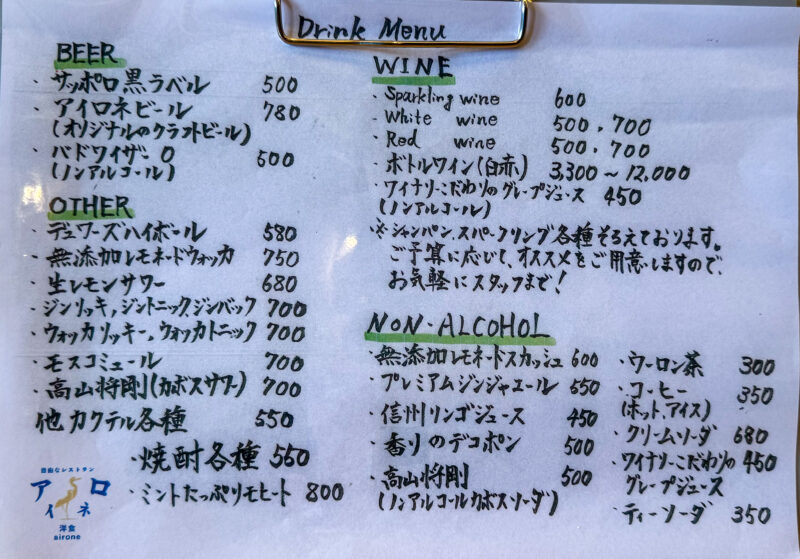 Drink Menu
BEER
・サッポロ黒ラベル 500
・アイロネビール 780
(オリジナルのクラフトビール)
・バドワイザー0 500
(ノンアルコール)
OTHER
・デュワーズハイボール 580
・無添加レモネードウォッカ 750
・生レモンサワー 680
・ジンリッキー,ジントニック,ジンバック 700
・ウォッカリッキー,ウォッカトニック 700
・モスコミュール 700
・高山将剛(カボスサワー) 700
他カクテル各種 550
・焼酎各種 550
・ミントたっぷりモヒート 800
自由なレストラン
アイロネ
洋食
airone
WINE
・Sparkling wine 600
・White wine 500,700
・Red wine 500,700
・ボトルワイン(白赤) 3,300〜12,000
・ワイナリーこだわりのグレープジュース 450
(ノンアルコール)
※シャンパン,スパークリング各種そろえております。
ご予算に応じて、オススメをご用意しますので、
お気軽にスタッフまで!
NON・ALCOHOL
・無添加レモネードスカッシュ 600
・プレミアムジンジャエール 550
・信州リンゴジュース 450
・香りのデコポン 500
・高山将剛 500
(ノンアルコールカボスソーダ)
・ウーロン茶 300
・コーヒー 350
(ホット,アイス)
・クリームソーダ 680
・ワイナリーこだわりの 450
グレープジュース
・ティーソーダ 350